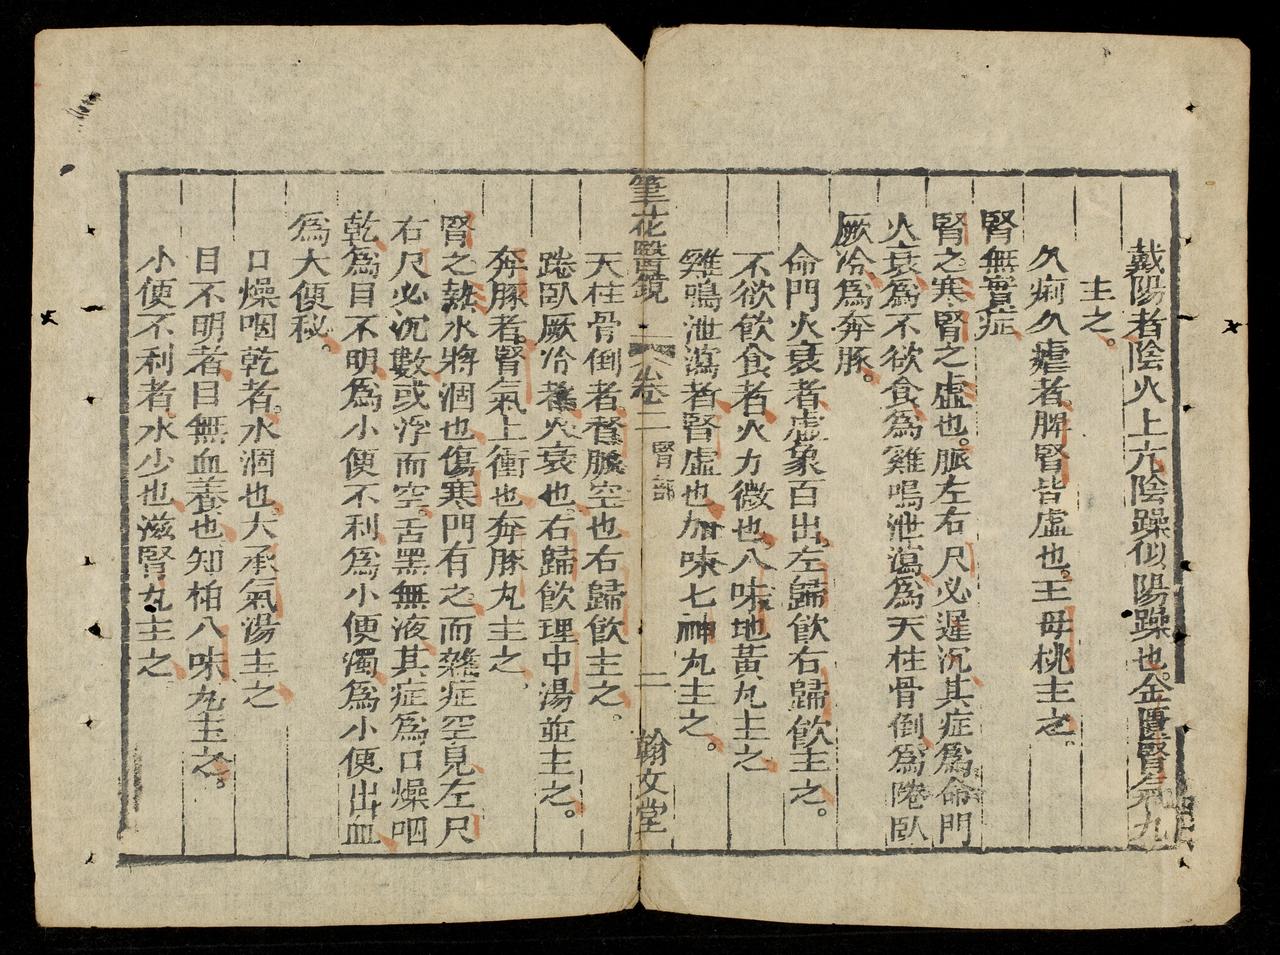 戴陽者陰火上亢陰躁似陽躁也。金匱腎氣九
主之。
久痢久瘧者。脾腎皆虛也。王母桃主之。
腎無實症
腎之寒腎之虛也。脈左右尺必遲沉其症爲命門
火衰爲不欲食爲雞鳴泄瀉爲天柱骨倒爲踡臥
厥冷爲奔豚。
命門火衰者虛象百出左歸飮右歸飮主之。
不欲飮食者火力微也八味地黃丸主之
雞鳴泄瀉者腎虛也加味七神丸主之。
筆花醫鏡 卷二 腎部 二 翰文堂
天柱骨倒者督脈空也右歸飮主之。
踡臥厥冷者火衰也。右歸飮理中湯並主之。
奔豚者。腎氣上衝也奔豚丸主之
腎之熱水將涸也傷寒門有之而雜症空見左尺
右尺必沉數或浮而空。舌黑無液其症爲口燥咽
乾爲目不明爲小便不利爲小便濁爲小便出血
爲大便秘。
口燥咽乾者。水涸也大承氣湯主之
目不明者目無血養也知柏八味丸主之。
小便不利者水少也滋腎丸主之